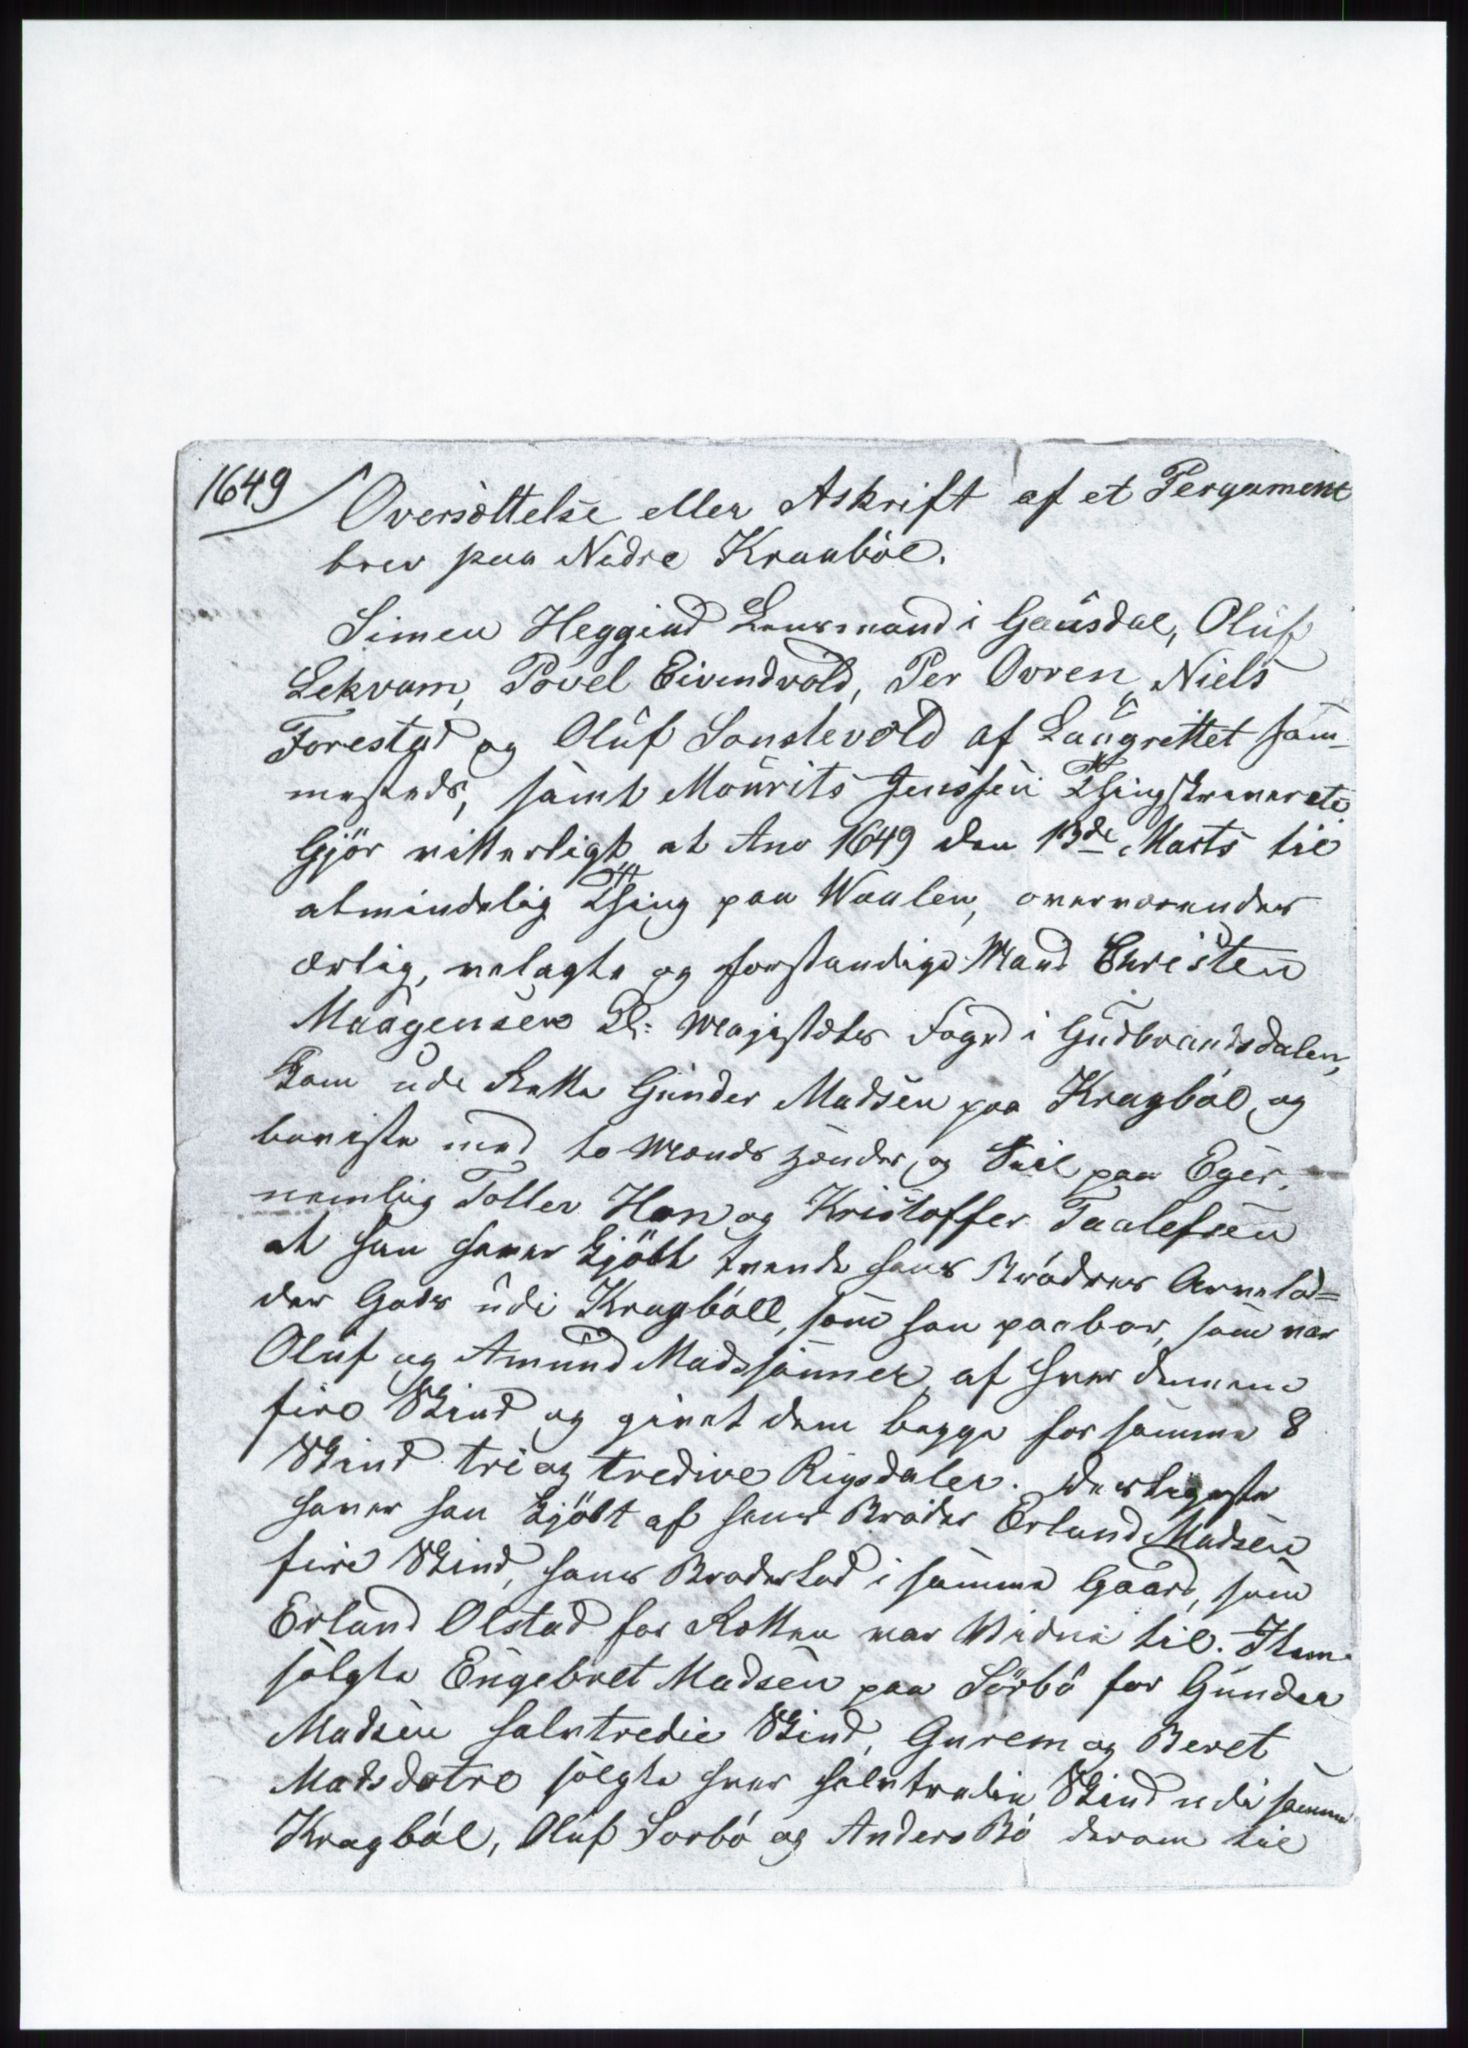 1649
Oversøttelse eller Askrift af et Pergament
brev paa Nedre Kraabøl.
Simen Heggind Lensmand i Gausdal, Oluf
Lekvam, Povel Eivindvold, Per Ovren, Niels
Forestad og Oluf Sandevold af Laugrettet sam-
mesteds, samt Mourits Jenssen Thingskriver etc
Gjör vitterligt at Ano 1649 den 13de Marts til
almindelig Thing paa Waalen, overværendes
ærlig, velagte og forstandige Mand Christen
Maagensen Kl: Majestæts Foged i Gudbrandsdalen,
Kom udi Rette Gunder Madsen paa Kragböl, og
beviste med to Mænds Hænder og Seil paa Eger,
nemlig Toller Hen og Kristoffer Taalefsen
at han haver kjöbt tvende hans Brödres Arvelod=
der Gods udi Kragböll, som han paabor, som var
Oluf og Amund Madssönner, af hver dennem
fire Skind og givet dem begge for samme 8
Skind tri og tredive Rigsdaler. Desligeste
haver han kjöbt af hans Broder Erland Madsen
fire Skind, hans Broderlod i samme Gaard, som
Erland Olstad for Retten var Vidne til. Item
solgte Engebret Madsen paa Sörbö for Gunder
Madsen halvtredie Skind, Gurem og Beret
Madsdøtre solgte hver halvtredie Skind udi samme
Kragböl, Oluf Sorbö og Anders Bö derom til